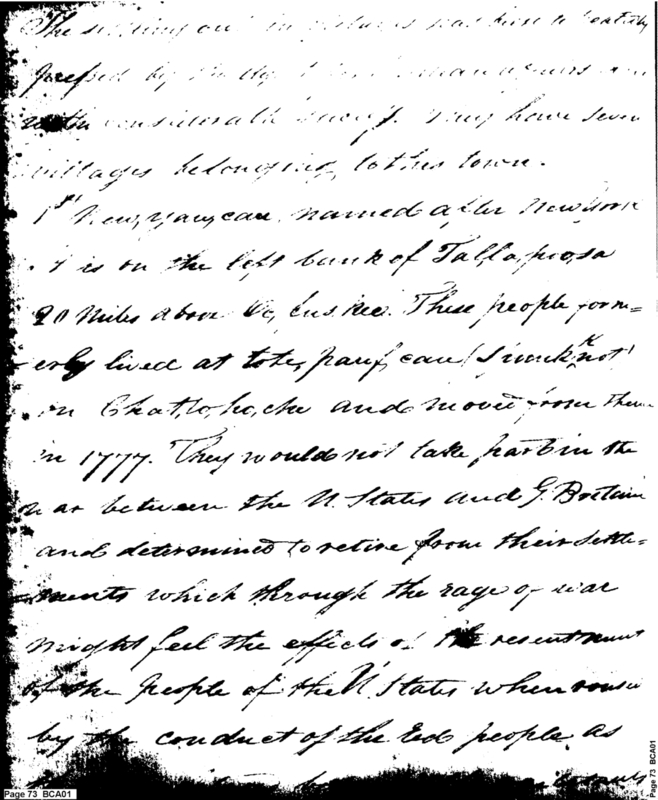 The settling out in villages has been
pressed by
with considerable success. They have seven
villages belonging to this town.
1st New, yau, cau, named after New York
is on the left bank of Tal, la, poo, sa
20 Miles above Oc, fus, kee. These people form=
erly lived at tote, pauf, cau (spunk knot)
on Chat, to, ho, che and moved from thence
in 1777. They would not take part in the
war between the U. States and G. Britain
and determined to retire from their settle=
ments which through the rage of war
might feel the effects of the resentment
of the People of the U. States when
by the conduct of the Red people, as
Page 73 BCA01
Page 73 BCA01